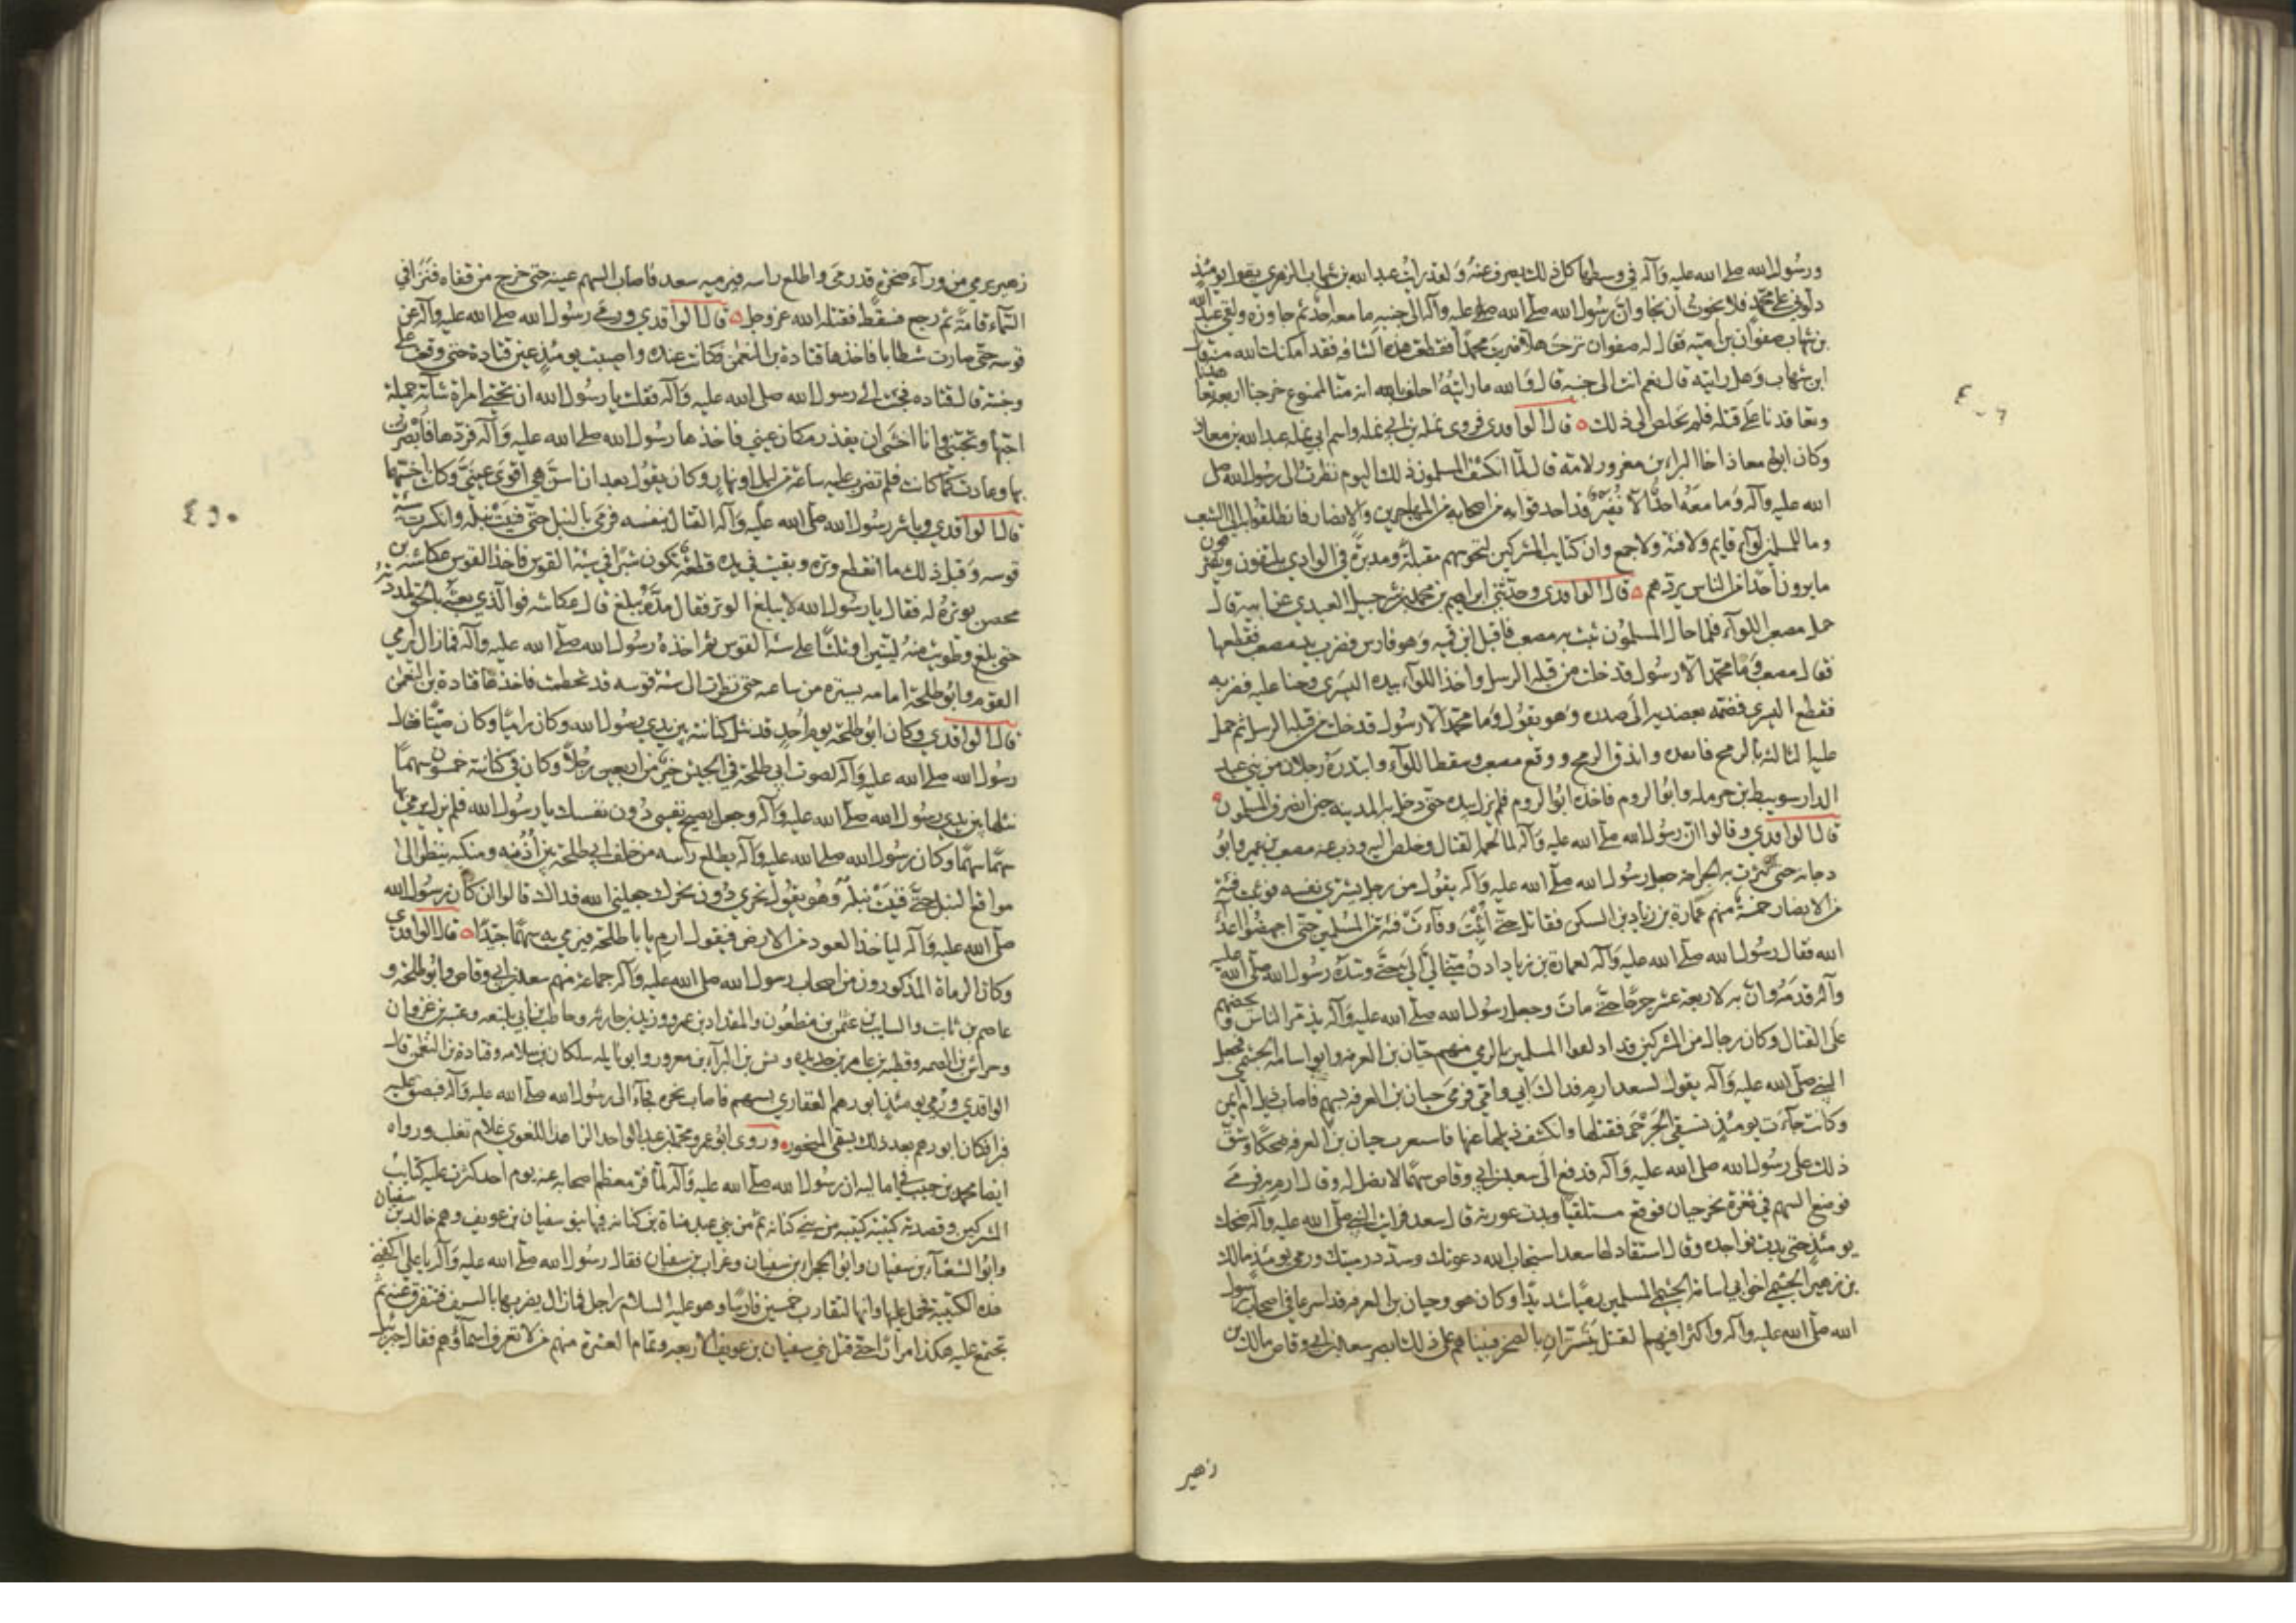 ورسول الله صلى الله عليه وآله في وسطها كل ذلك يصرف عنه ولقد رايت عبد الله بن شهاب الزهري يقول يومئذ
دلوني على محمد فلا نجوت ان نجا وان رسول الله صلى الله عليه وآله الى جنبه ما معه احد ثم جاوزه ولقي عبد الله
بن شهاب صفوان بن امية فقال له صفوان ترحت هلا ضربت محمدا فقطعت هذه الشافه فقد امكنك الله منه قال
ابن شهاب وهل رايته قال نعم انت الى جنبه قال والله ما رايته احلف بالله انه منا لممنوع خرجنا اربعة تعاهدنا
وتعاقدنا على قتله فلم نخلص الى ذلك ه قال الواقدي فروى نمله بن ابي نمله واسم ابي نمله عبد الله بن معاذ
وكان ابوه معاذ اخا البراء بن معرور لامه قال لما انكشف المسلمون ذلك اليوم نظرت الى رسول الله صلى
الله عليه وآله وما معه احد الا نفير قد احدقوا به من اصحابه من المهاجرين والانصار فانطلقوا به الى الشعب
وما للمسلمين لواء قايم ولا فئة ولا جمع وان كتايب المشركين لتحوسهم مقبلة ومدبرة في الوادي يلتقون ويفترقون
ما يرون احدا من الناس يردهم ه قال الواقدي وحدثني ابراهيم بن محمد بن شرحبيل العبدي عن ابيه قال
حمل مصعب اللوآء فلما جال المسلمون ثبت به مصعب فاقبل ابن قميه وهو فارس فضرب يد مصعب فقطعها
فقال مصعب وما محمد الا رسول قد خلت من قبله الرسل واخذ اللوآء بيده اليسرى وحنا عليه فضربه
فقطع اليسرى فضمه بعضديه الى صدره وهو يقول وما محمد الا رسول قد خلت من قبله الرسل ثم حمل
عليه الثالثة بالرمح فانفذه واندق الرمح ووقع مصعب وسقط اللوآء وابتدره رجلان من بني عبد
الدار سويبط بن حرمله وابو الروم فاخذه ابو الروم فلم يزل بيده حتى دخل به المدينه حين انصرف المسلمون ه
قال الواقدي وقالوا ان رسول الله صلى الله عليه وآله لما لحمه القتال وخلص اليه وذب عنه مصعب بن عمير وابو
دجانه حتى كثرت به الجراحه جعل رسول الله صلى الله عليه وآله يقول من رجل يشري نفسه فوثب فئة
من الانصار خمسة منهم عمارة بن زياد بن السكن فقاتل حتى اثبت وفآءت فئة من المسلمين حتى اجهضوا اعدآء
الله فقال رسول الله صلى الله عليه وآله لعمارة بن زياد ادن مني الي الي حتى وسده رسول الله صلى الله عليه
وآله قدمه وان به لاربعة عشر جرحا حتى مات وجعل رسول الله صلى الله عليه وآله يذمر الناس ويحضهم
على القتال وكان رجال من المشركين قد اذلقوا المسلمين بالرمي منهم حبان بن العرقه وابو اسامه الجشمي فجعل
النبي صلى الله عليه وآله يقول لسعد ارم فداك ابي وامي فرمى حبان بن العرقه بسهم فاصاب ذيل ام ايمن
وكانت جآءت يومئذ تسقي الجرحى فقتلها وانكشف ذيلها عنها فاستغرب حبان بن العرقه ضحكا وشق
ذلك على رسول الله صلى الله عليه وآله فدفع الى سعد بن ابي وقاص سهما لا نصل له وقال ارم به فرمى
فوضع السهم في ثغرة نحر حبان فوقع مستلقيا وبدت عورته قال سعد فرايت النبي صلى الله عليه وآله ضحك
يومئذ حتى بدت نواجذه وقال استقاد لها سعد استجاب الله دعوتك وسدد رميتك ورمى يومئذ مالك
بن زهير الجشمي اخو ابي اسامة الجشمي المسلمين رميا شديدا وكان هو وحبان بن العرقه قد اسرعا في اصحاب رسول
الله صلى الله عليه وآله واكثرا فيهم القتل يتستران بالصخر فبينا هم على ذلك ابصر سعد بن ابي وقاص مالك بن
زهير
٤٠٩
زهير يرمي من ورآء صخرة قد رمى واطلع راسه فيرميه سعد فاصاب السهم عينه حتى خرج من قفاه فنزا في
السمآء قامة ثم رجع فسقط فقتله الله عز وجل ه قال الواقدي ورمى رسول الله صلى الله عليه وآله عن
قوسه حتى صارت شظايا فاخذها قتادة بن النعمن فكانت عنده واصيبت يومئذ عين قتادة حتى وقعت على
وجنته قال قتاده فجئت الى رسول الله صلى الله عليه وآله فقلت يا رسول الله ان تحتي امراة شابة جميلة
احبها وتحبني وانا اخشى ان تقذر مكان عيني فاخذها رسول الله صلى الله عليه وآله فردها فابصرت
بها وعادت كما كانت فلم تضرب عليه ساعة من ليل او نهار وكان يقول بعد ان اسن هي اقوى عيني وكانت احسنهما
قال الواقدي وباشر رسول الله صلى الله عليه وآله القتال بنفسه فرمى بالنبل حتى فنيت نبله وانكسرت سية
قوسه وقبل ذلك ما انقطع وتره وبقيت في يده قطعة تكون شبرا في سية القوس فاخذ القوس عكاشة بن
محصن يوتره له فقال يا رسول الله لا يبلغ الوتر فقال مده يبلغ قال عكاشه فوالذي بعثه بالحق لمددته
حتى بلغ وطويت منه ليتين او ثلثا على سية القوس ثم اخذه رسول الله صلى الله عليه وآله فما زال يرامي
القوم وابو طلحة امامه يستره من ساعه حتى نظرت الى سية قوسه قد تحطمت فاخذها قتادة بن النعمن
قال الواقدي وكان ابو طلحة يوم احد قد نثل كنانته بين يدي رسول الله وكان راميا وكان صيتا فقال
رسول الله صلى الله عليه وآله لصوت ابي طلحة في الجيش خير من اربعين رجلا وكان في كنانته خمسون سهما
نثلها بين يدي رسول الله صلى الله عليه وآله وجعل يصيح نفسي دون نفسك يا رسول الله فلم يزل يرمي بها
سهما سهما وكان رسول الله صلى الله عليه وآله يطلع راسه من خلف ابي طلحة بين اذنه ومنكبه ينظر الى
مواقع النبل حتى فنيت نبله وهو يقول نحري دون نحرك جعلني الله فداك قالوا ان كان رسول الله
صلى الله عليه وآله ليأخذ العود من الارض فيقول ارم يا با طلحة فيرمي به سهما جيدا ه قال الواقدي
وكان الرماة المذكورون من اصحاب رسول الله صلى الله عليه وآله جماعة منهم سعد بن ابي وقاص وابو طلحة و
عاصم بن ثابت والسايب بن عثمن بن مظعون والمقداد بن عمرو وزيد بن حارثه وحاطب بن ابي بلتعه وعتبه بن غزوان
وخراش بن الصمه وقطبه بن عامر بن حديده وبشر بن البرآء بن معرور وابو نايله سلكان بن سلامه وقتادة بن النعمن قال
الواقدي ورمي يومئذ ابو رهم الغفاري بسهم فاصاب نحره فجآء الى رسول الله صلى الله عليه وآله فبصق عليه
فبرا فكان ابو رهم بعد ذلك يسمى المنحور ه وروى ابو عمر محمد بن عبد الواحد الزاهد اللغوي غلام ثعلب ورواه
ايضا محمد بن حبيب في اماليه ان رسول الله صلى الله عليه وآله لما فر معظم اصحابه عنه يوم احد كثرت عليه كتايب
المشركين وقصدته كتيبة من بني كنانه ثم من بني عبد مناة بن كنانه فيها بنو سفيان بن عويف وهم خالد بن سفيان
وابو الشعثآء بن سفيان وابو الحمراء بن سفيان وغراب بن سفيان فقال رسول الله صلى الله عليه وآله يا علي اكفني
هذه الكتيبة فحمل عليها وانها لتقارب خمسين فارسا وهو عليه السلام راجل فما زال يضربها بالسيف فتتفرق عنه ثم
تجتمع عليه هكذا مرارا حتى قتل بني سفيان بن عويف الاربعه وتمام العشرة منهم ممن لا تعرف اسمآؤهم فقال جبرئيل
٤٥٠